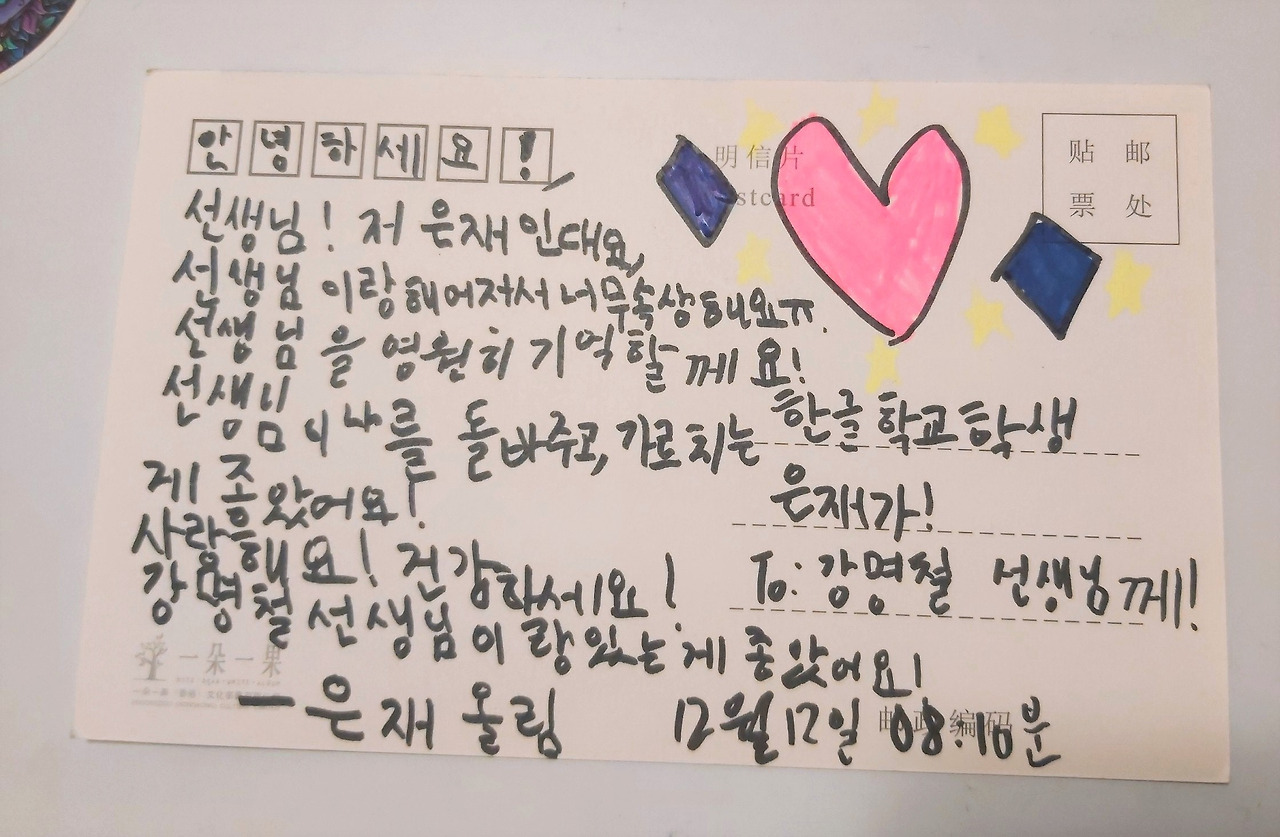 안녕하세요!
선생님! 저 은재인대요,
선생님이랑 헤어저서 너무 속상해요ㅠ.
선생님을 영원히 기억할께요!
선생님이 나를 돌바주고, 가르치는
게 좋았어요!
사랑해요! 건강하세요!
강명철 선생님이랑 있는 게 좋았어요!
一 은재 올림 12월 12일 08:16분
明信片
stcard
贴 邮
票 处
한글학교 학생
은재가!
To: 강명철 선생님께!
一朵一果
邮政编码